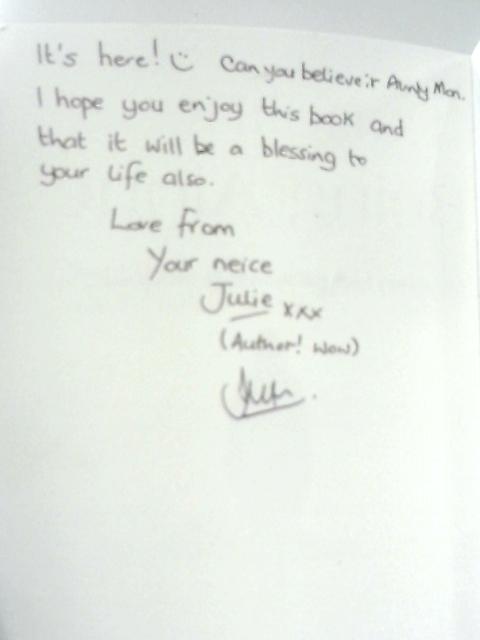 It's here! Can you believe it Aunty Mon.
I hope you enjoy this book and
that it will be a blessing to
your life also.
Love from
Your neice
Julie xxx
(Author! Wow)